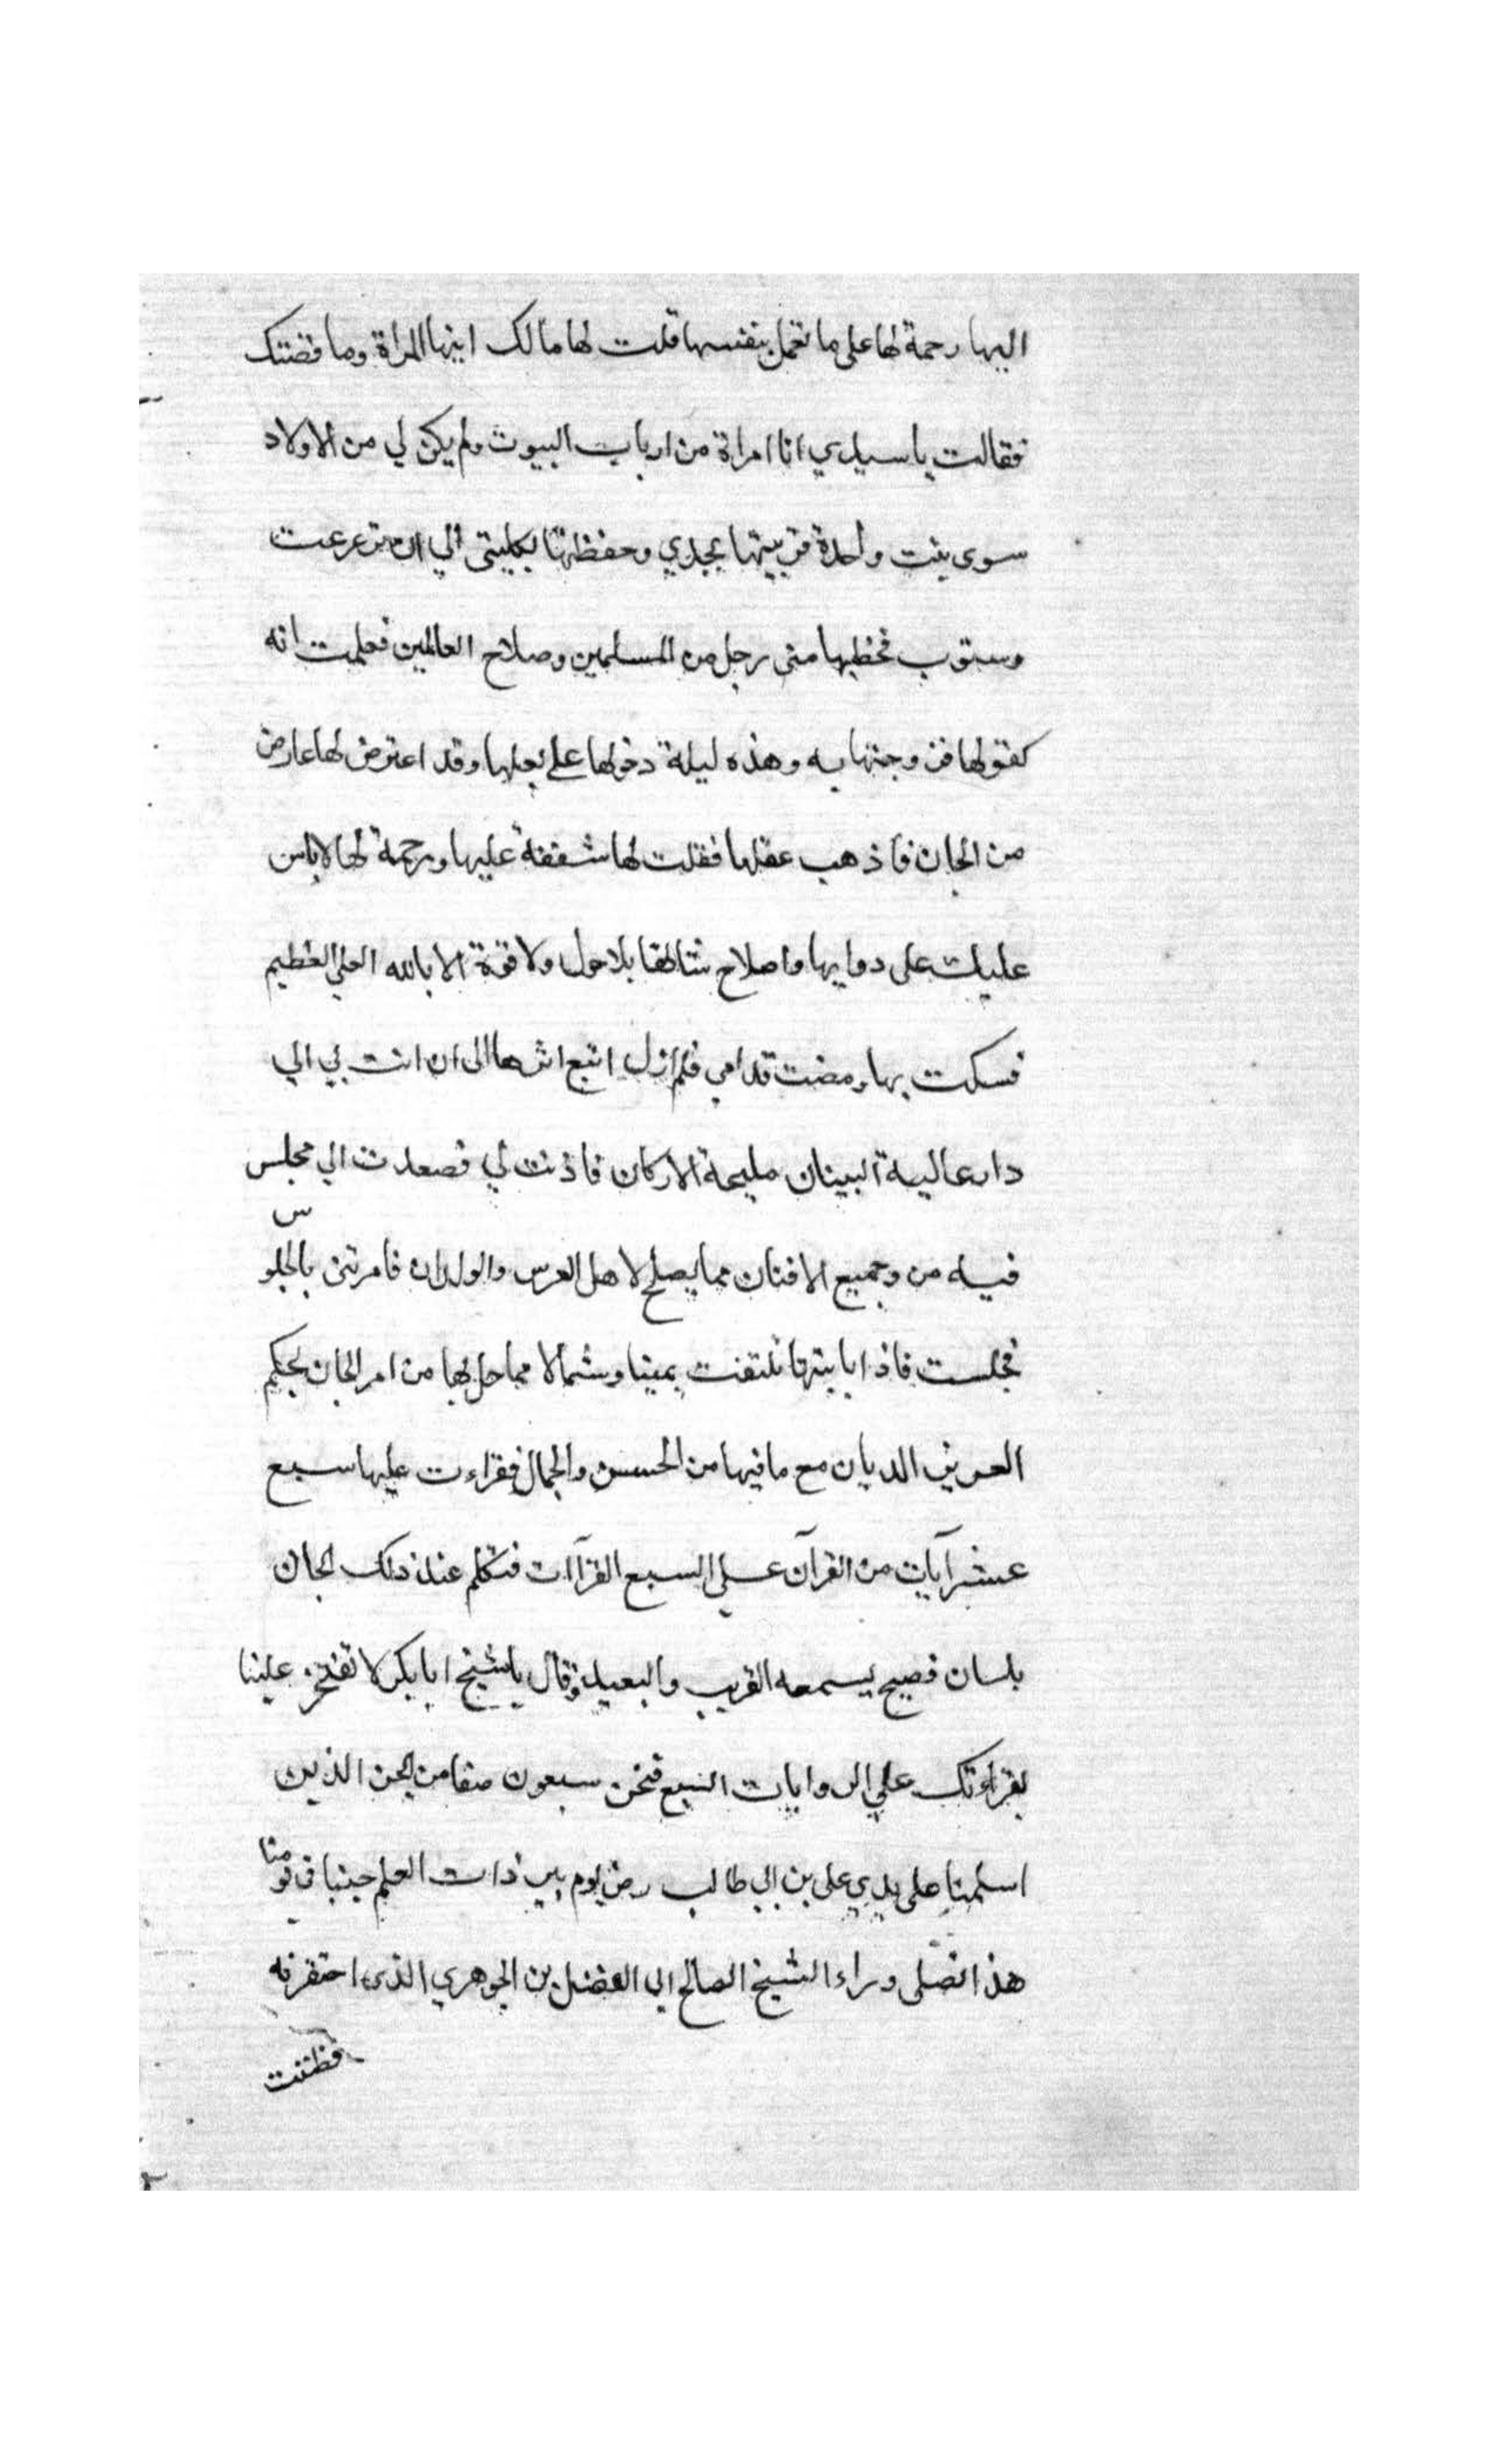 اليها رحمة لها على ما تعمل بنفسها قلت لها مالك ايتها المراة وما قضتك
فقالت يا سيدي انا امراة من ارباب البيوت ولم يكن لي من الاولاد
سوى بنت واحدة فربيتها بجدي وحفظتها بكليتى الي ان ترعرعت
فخطبها منى رجل من المسلمين وصلاح العالمين فعلمت انه
كفو لها فزوجتها به وهذه ليلة دخولها على بعلها وقد اعترض لها عارض
من الجان فاذهب عقلها فقلت لها شفقة عليها ورحمة لها لا باس
عليك على دوايها واصلاح شانها بلا حول ولا قوة الا بالله العلي العظيم
فسكت بها ومضت قدامي فلم ازل اتبع اثرها الى ان اتت بي الي
دار عالية البينان مليحة الاركان فاذنت لي فصعدت الي مجلس
فيه من وجميع الافنان مما يصلح لاهل العرس والولدان فامرتنى بالجلوس
فجلست فاذا بابنتها تلتفت يمينا وشمالا مما حل بها من امر الجان بحكم
العزيز الديان مع ما فيها من الحسن والجمال فقراءت عليها سبع
عشر آيات من القرآن على السبع القرآات فتكلم عند ذلك الجان
بلسان فصيح يسمعه القريب والبعيد وقال يا شيخ ابا بكر لا تفتخر علينا
بقراءتك علي الروايات السبع فنحن سبعون صنفا من الجن الذين
اسلمنا على يدي علي بن ابي طالب رض يوم بير ذات العلم جينا في يومنا
هذا نصلى وراء الشيخ الصالح ابي الفضل بن الجوهري الذى احتقرته
فظننت